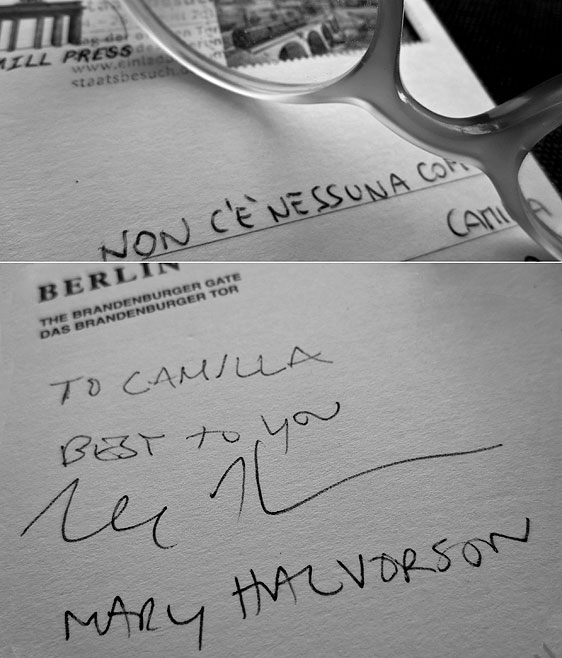 MILL PRESS
www.einlad
staatsbesuch.
NON C'È NESSUNA COM
CAMILLA
BERLIN
THE BRANDENBURGER GATE
DAS BRANDENBURGER TOR
TO CAMILLA
BEST TO YOU
MARY HALVORSON